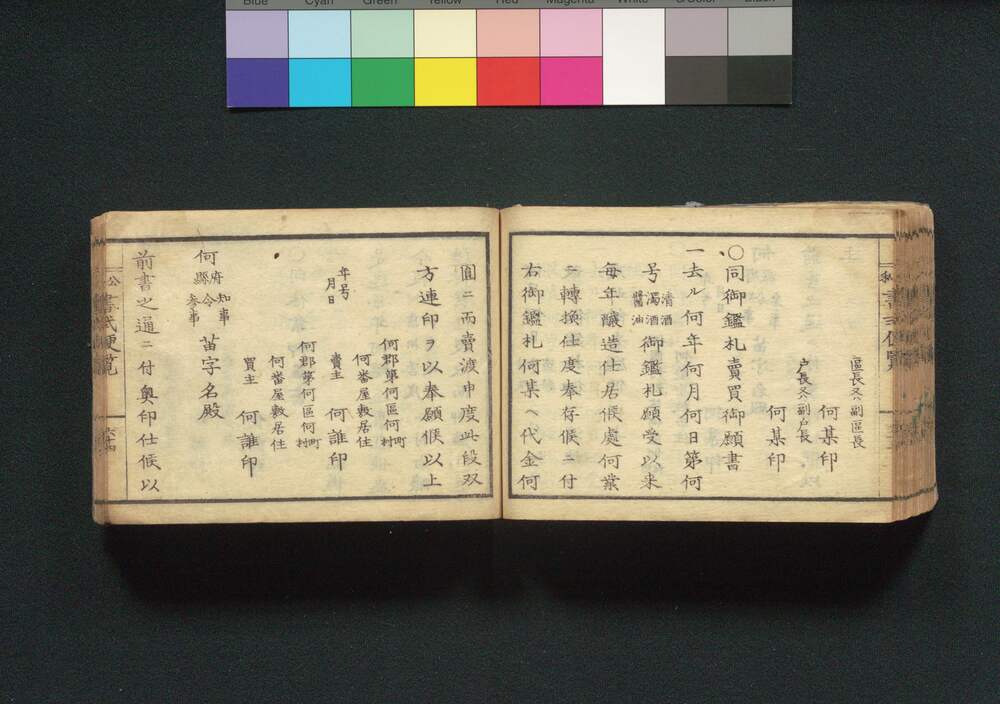 Blue Cyan Green Yellow Red Magenta White 3/Color Black
區長又ハ副區長
何某印
戸長又ハ副戸長
何某印
〇同御鑑札賣買御願書
一去ル何年何月何日第何
号清酒濁酒醬油御鑑札願受以来
每年釀造仕居候處何業
ニ轉換仕度奉存候ニ付
右御鑑札何某ヘ代金何
圓ニ而賣渡申度此段双
方連印ヲ以奉願候以上
年号月日
何郡第何區何町村
何番屋敷居住
賣主 何誰印
何郡第何區何町村
何番屋敷居住
買主 何誰印
何府縣知事令参事 苗字名殿
前書之通ニ付奥印仕候以
公 書式便覧 六十四